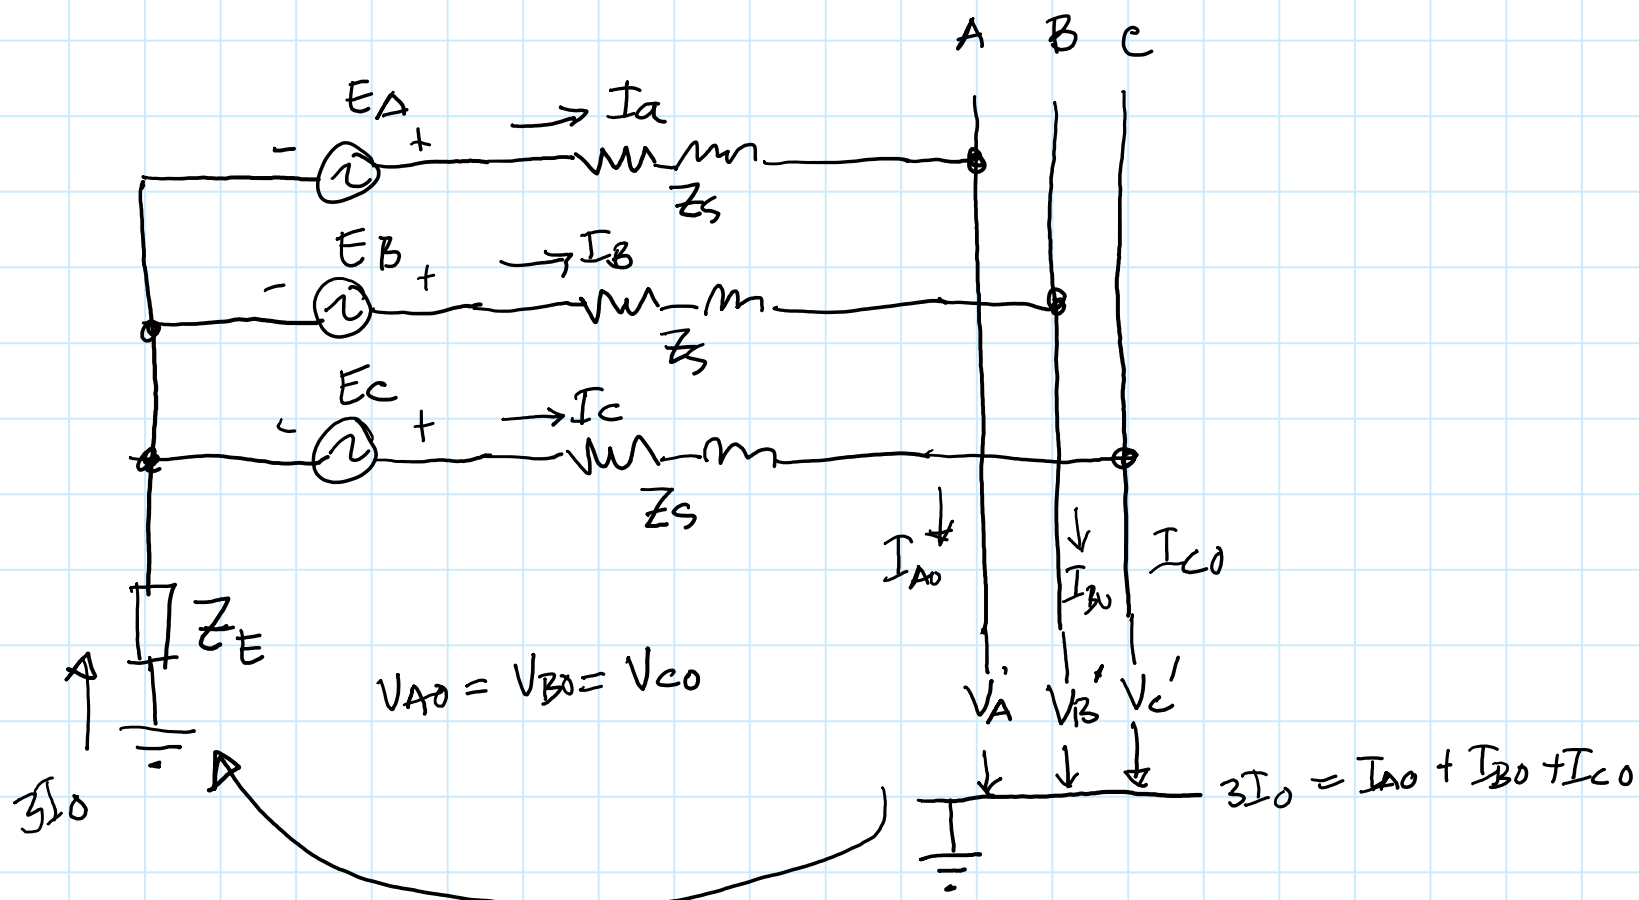 A B C
EA Ia
- +
Zs
EB IB
- +
Zs
EC IC
- +
Zs
IA0 IB0 IC0
ZE
VA0 = VB0 = VC0
VA' VB' VC'
3I0
3I0 = IA0 + IB0 + IC0